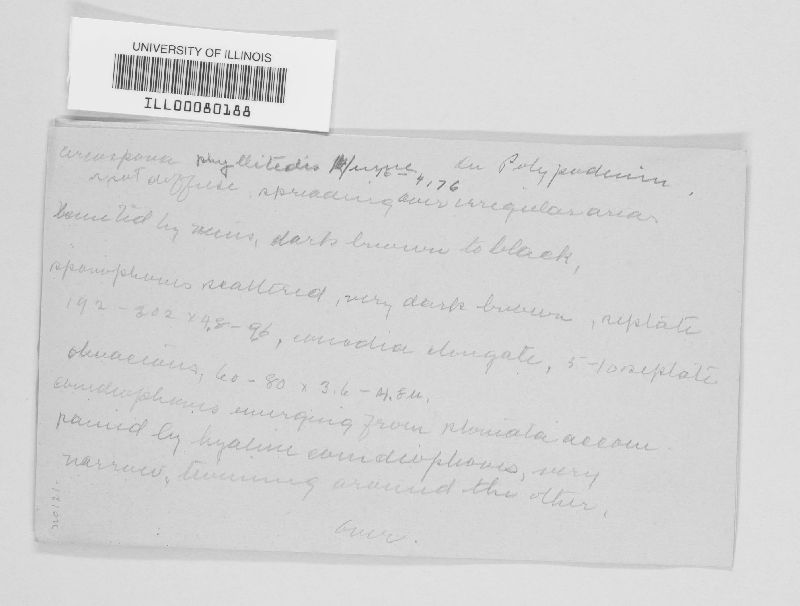 UNIVERSITY OF ILLINOIS
ILL00080188
Cercospora phyllitedis on Polypodium.
spot diffuse spreading over irregular areas 4,76
bounded by veins, dark brown to black,
sporophores scattered, very dark brown, septate
192-302 x 4.8-96, conidia elongate, 5-10 septate
obvacious, 60-80 x 3.6-4.8u.
conidiophores emerging from stomata accom-
panied by hyaline conidiophores, very
narrow, twining around the other,
over.
no121-